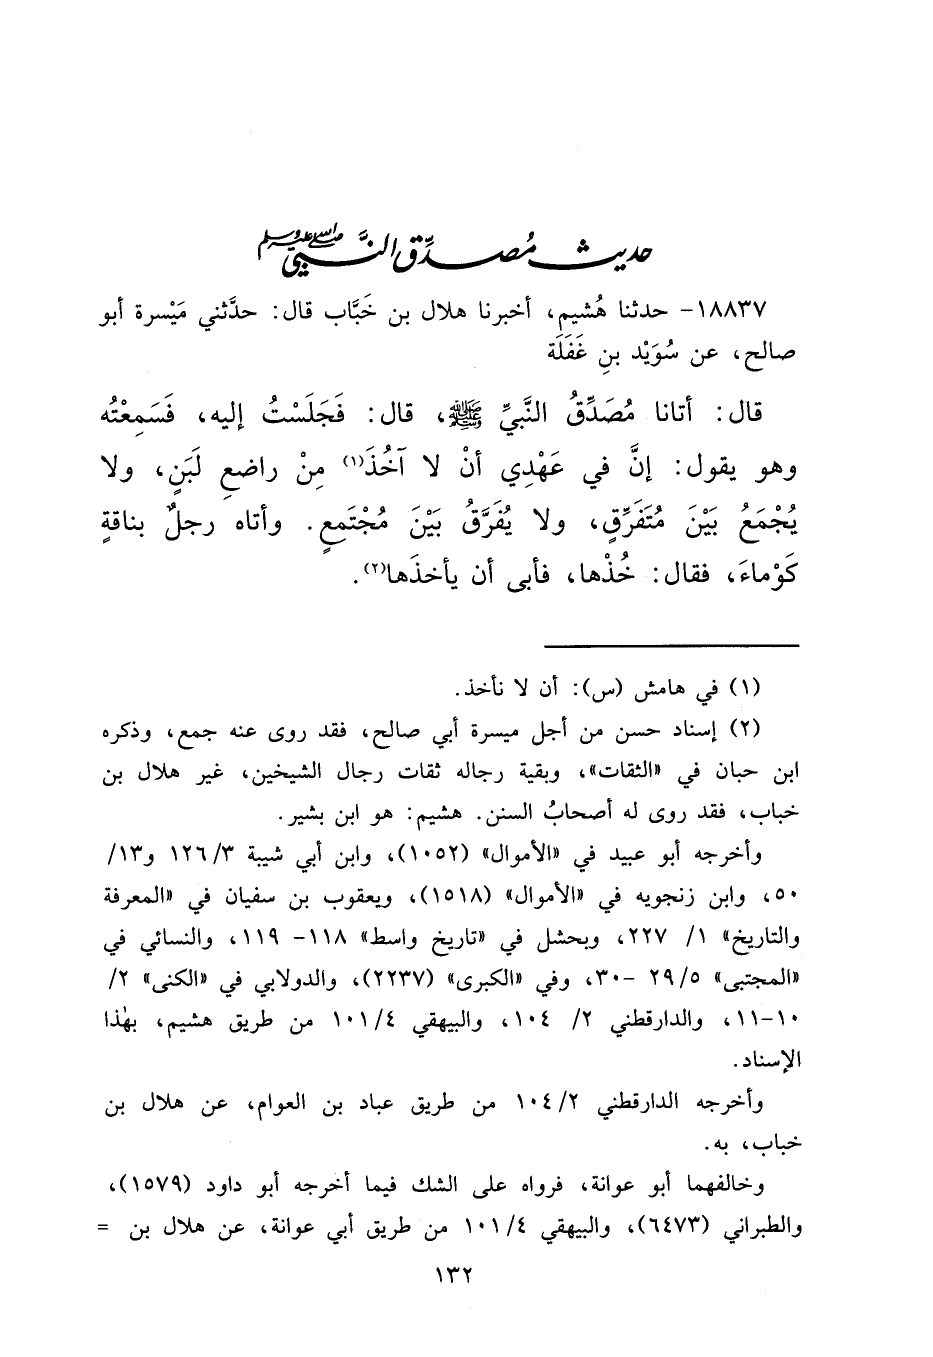 حديث مُصدِّق النَّبيِّ ﷺ
١٨٨٣٧- حدثنا هُشيم، أخبرنا هلال بن خَبَّاب قال: حدَّثني مَيْسرة أبو
صالح، عن سُوَيْد بنِ غَفَلَة
قال: أتانا مُصَدِّقُ النَّبيِّ ﷺ، قال: فَجَلَسْتُ إليه، فَسَمِعْتُه
وهو يقول: إنَّ في عَهْدِي أنْ لا آخُذَ(١) مِنْ راضعِ لَبَنٍ، ولا
يُجْمَعُ بَيْنَ مُتَفَرِّقٍ، ولا يُفَرَّقُ بَيْنَ مُجْتَمعٍ. وأتاه رجلٌ بناقةٍ
كَوْماءَ، فقال: خُذْها، فأبى أن يأخذَها(٢).
(١) في هامش (س): أن لا نأخذ.
(٢) إسناد حسن من أجل ميسرة أبي صالح، فقد روى عنه جمع، وذكره
ابن حبان في «الثقات»، وبقية رجاله ثقات رجال الشيخين، غير هلال بن
خباب، فقد روى له أصحابُ السنن. هشيم: هو ابن بشير.
وأخرجه أبو عبيد في «الأموال» (١٠٥٢)، وابن أبي شيبة ١٢٦/٣ و١٣/
٥٠، وابن زنجويه في «الأموال» (١٥١٨)، ويعقوب بن سفيان في «المعرفة
والتاريخ» ١/ ٢٢٧، وبحشل في «تاريخ واسط» ١١٨- ١١٩، والنسائي في
«المجتبى» ٢٩/٥ -٣٠، وفي «الكبرى» (٢٢٣٧)، والدولابي في «الكنى» ٢/
١٠-١١، والدارقطني ٢/ ١٠٤، والبيهقي ١٠١/٤ من طريق هشيم، بهٰذا
الإسناد.
وأخرجه الدارقطني ١٠٤/٢ من طريق عباد بن العوام، عن هلال بن
خباب، به.
وخالفهما أبو عوانة، فرواه على الشك فيما أخرجه أبو داود (١٥٧٩)،
والطبراني (٦٤٧٣)، والبيهقي ١٠١/٤ من طريق أبي عوانة، عن هلال بن =
١٣٢